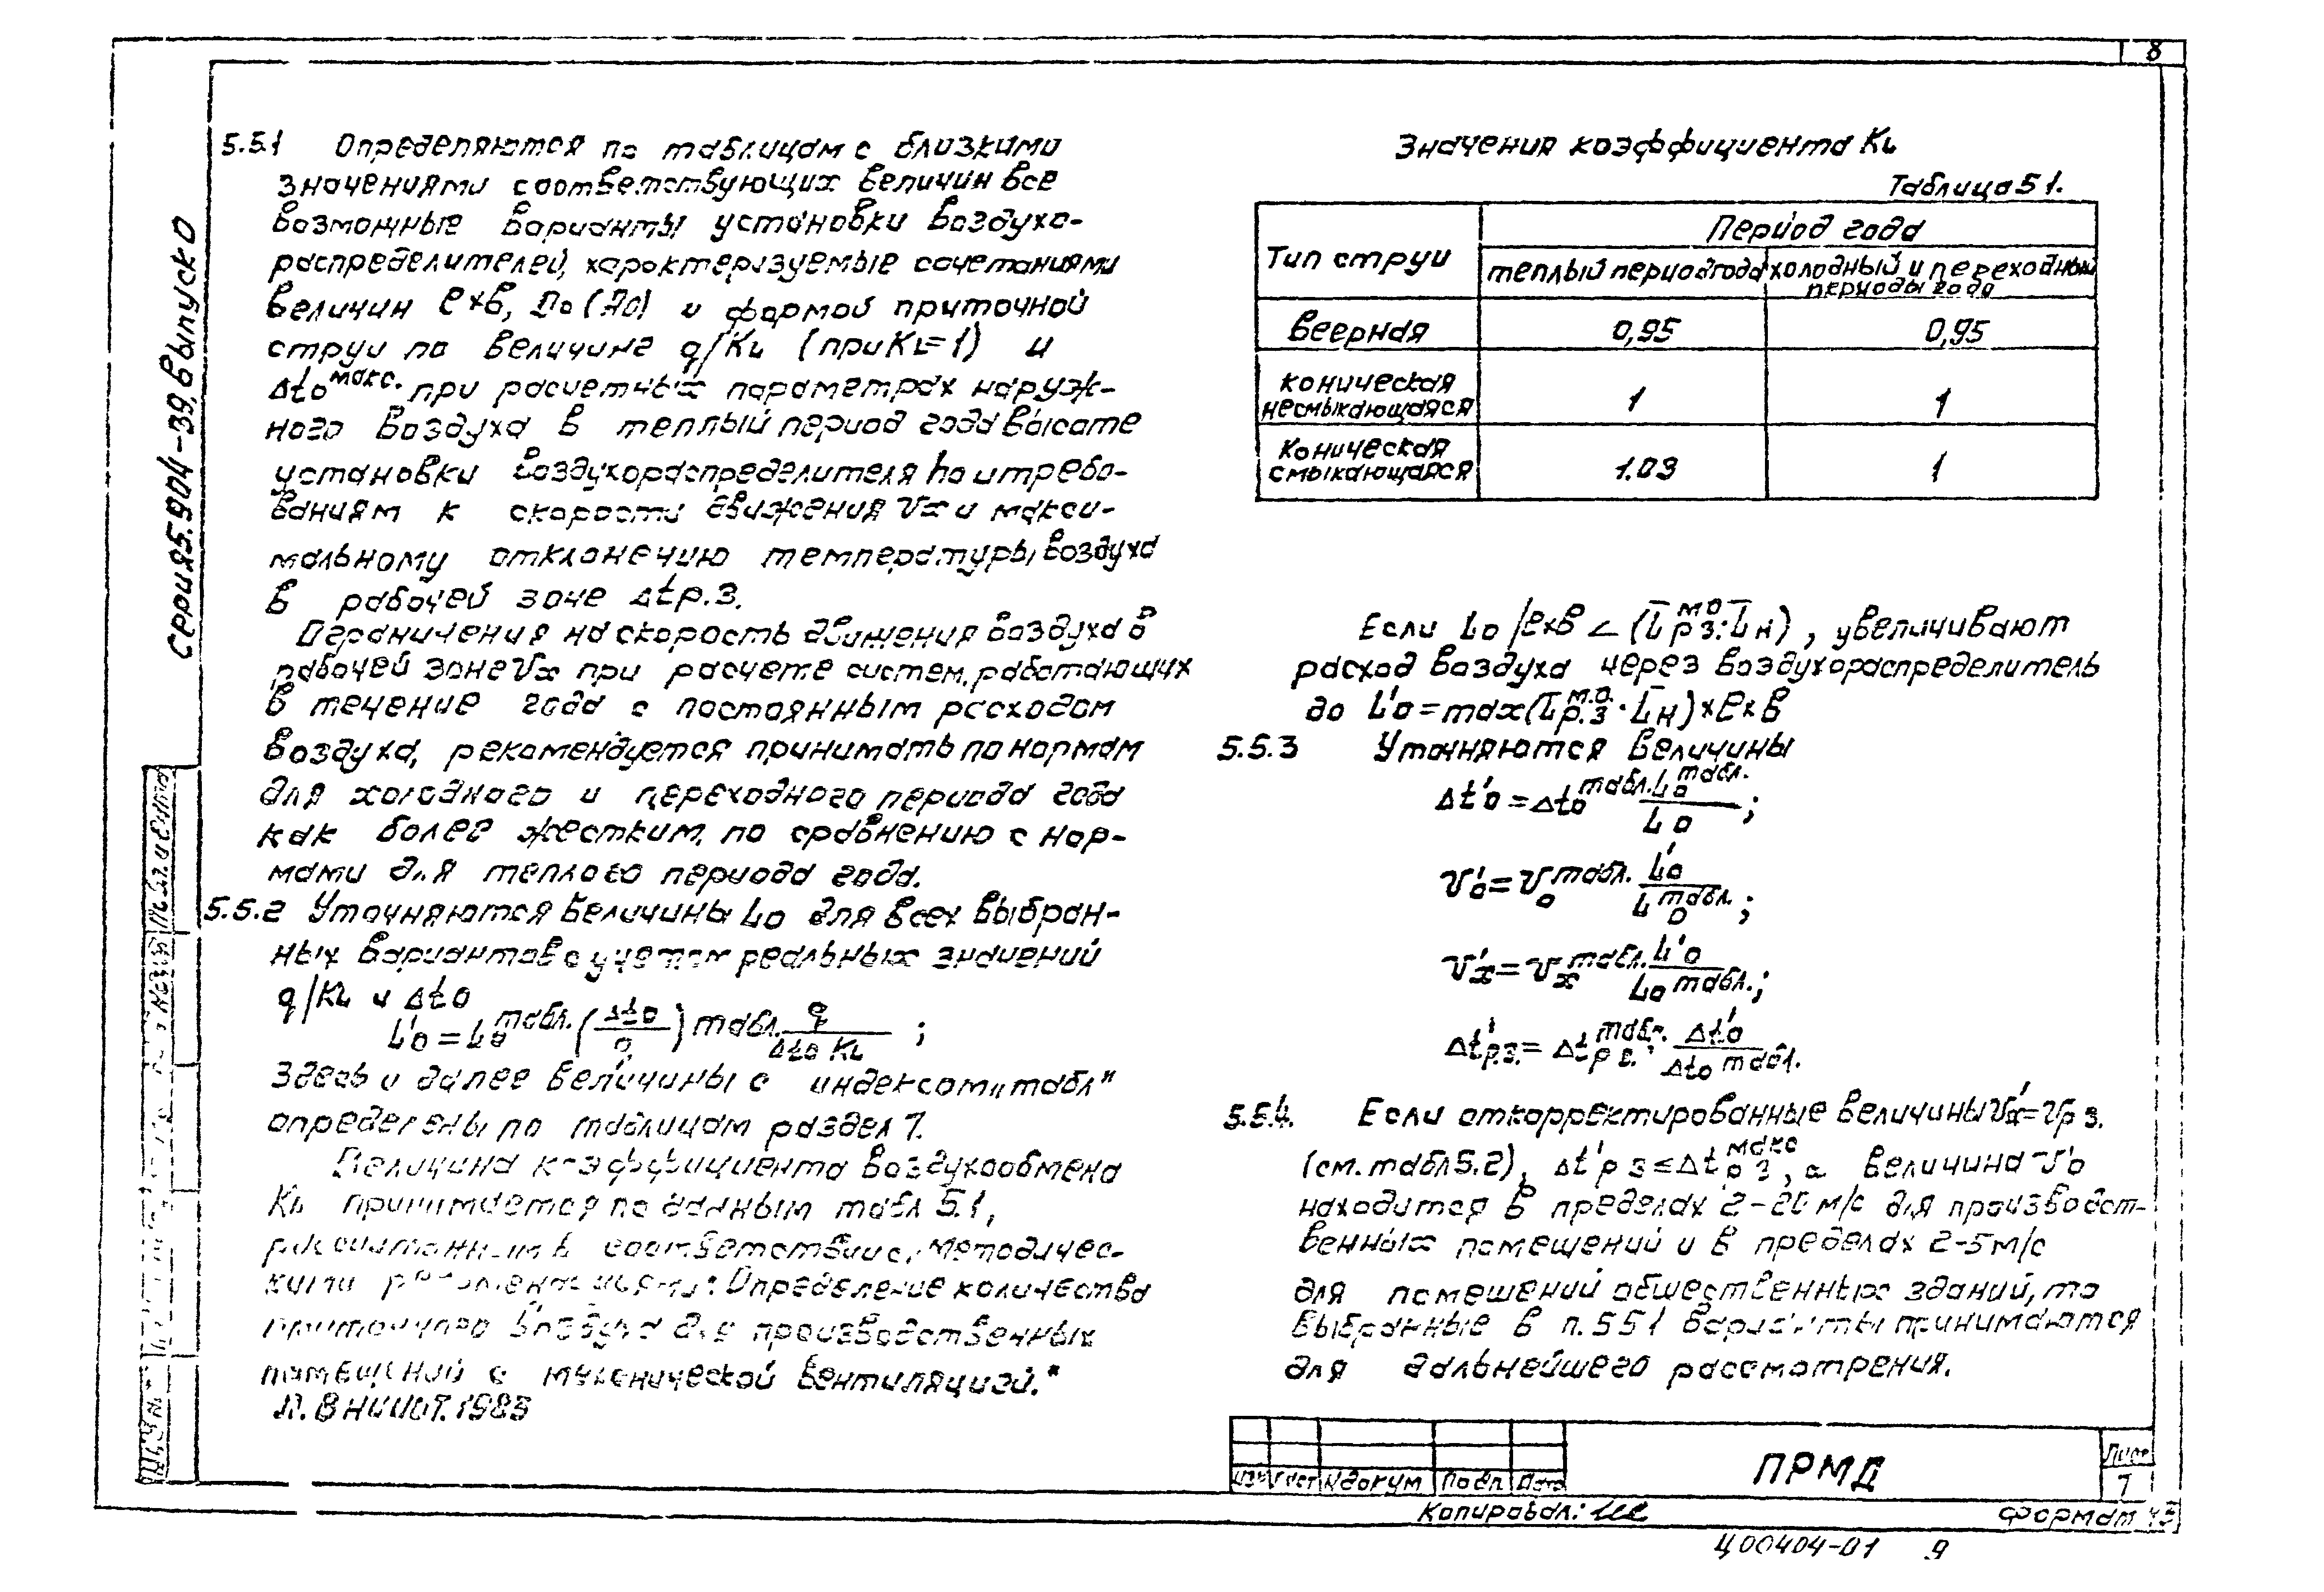 8
Серия 5.904-39, выпуск 0
5.5.1 Определяются по таблицам с близкими
значениями соответствующих величин все
возможные варианты установки воздухо-
распределителей, характеризуемые сочетаниями
величин ℓ×в, По (До) и формой приточной
струи по величине q/KL (при KL=1) и
Δto макс. при расчетных параметрах наруж-
ного воздуха в теплый период года высоте
установки воздухораспределителя ho и требо-
ваниям к скорости движения Vx и макси-
мальному отклонению температуры воздуха
в рабочей зоне Δtр.з.
Ограничения на скорость движения воздуха в
рабочей зоне Vx при расчете систем, работающих
в течение года с постоянным расходом
воздуха, рекомендуется принимать по нормам
для холодного и переходного периода года
как более жестким, по сравнению с нор-
мами для теплого периода года.
5.5.2 Уточняются величины Lo для всех выбран-
ных вариантов с учетом реальных значений
q/KL и Δto
L'o = Lo табл. (Δto/q) табл. q/(Δto KL) ;
Здесь и далее величины с индексом „табл"
определены по таблицам раздел 7.
Величина коэффициента воздухообмена
KL принимается по данным табл 5.1,
в соответствие с, методичес-
кими : Определение количества
приточного воздуха для производственных
помещений с механической вентиляцией."
Л. ВНИИОТ. 1985
Значения коэффициента KL
Таблица 5 1.
Тип струи
Период года
теплый период года
холодный и переходный
периоды года
Веерная 0,95 0,95
коническая
несмыкающаяся 1 1
Коническая
смыкающаяся 1.03 1
Если Lo/ℓ×в < (L̄ м о р з.: L̄н), увеличивают
расход воздуха через воздухораспределитель
до L'o = max(L̄ м.о. р.з · L̄н)×ℓ×в
5.5.3 Уточняются величины
Δt'o = Δto табл. Lo табл. / Lo ;
V'o = Vo табл. L'o / Lo табл. ;
V'x = Vx табл. L'o / Lo табл. ;
Δt'р.з. = Δtр з. табл. Δt'o / Δto табл.
5.5.4. Если откорректированные величины V'x = Vр з.
(см. табл 5.2), Δt'р з ≤ Δtр з макс, а величина V'o
находится в пределах 2-20 м/с для производст-
венных помещений и в пределах 2-5 м/с
для помещений общественных зданий, то
выбранные в п. 5 5 1 варианты принимаются
для дальнейшего рассмотрения.
Изм Лист N докум Подп. Дата
ПРМД
Лист
7
Копировал:
Формат
Ц00404-01 9